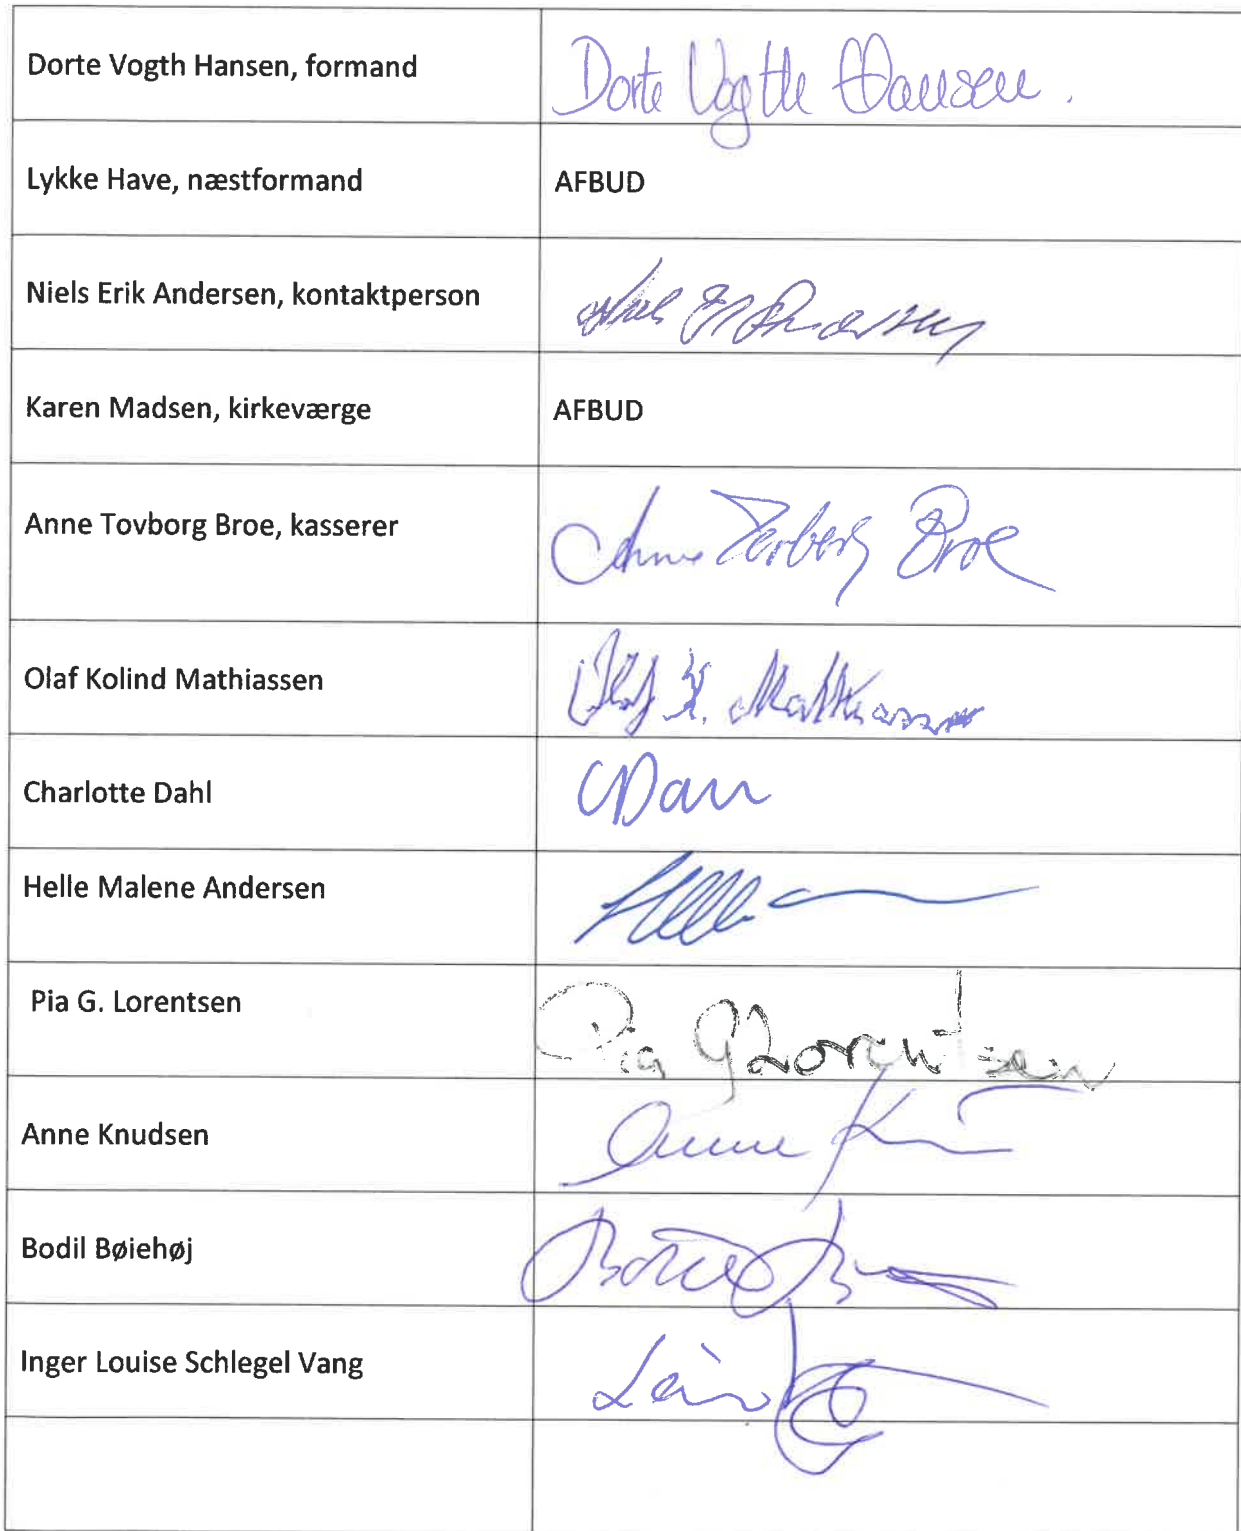 Dorte Vogth Hansen, formand
Dorte Vogth Hansen.
Lykke Have, næstformand
AFBUD
Niels Erik Andersen, kontaktperson
Niels E Andersen
Karen Madsen, kirkeværge
AFBUD
Anne Tovborg Broe, kasserer
Anne Tovborg Broe
Olaf Kolind Mathiassen
Olaf K. Mathiassen
Charlotte Dahl
CDahl
Helle Malene Andersen
Helle
Pia G. Lorentsen
Pia G Lorentsen
Anne Knudsen
Anne
Bodil Bøiehøj
Bodil
Inger Louise Schlegel Vang